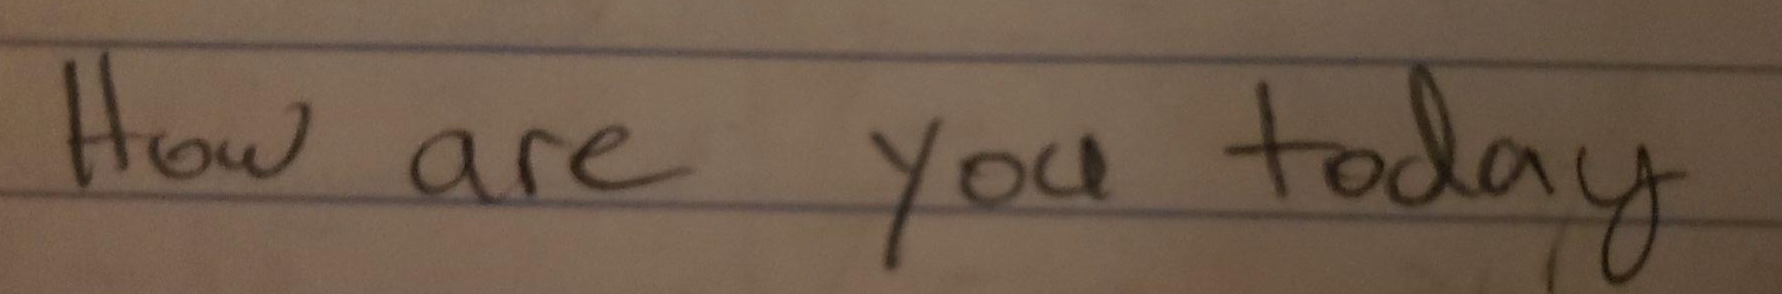 How are you today